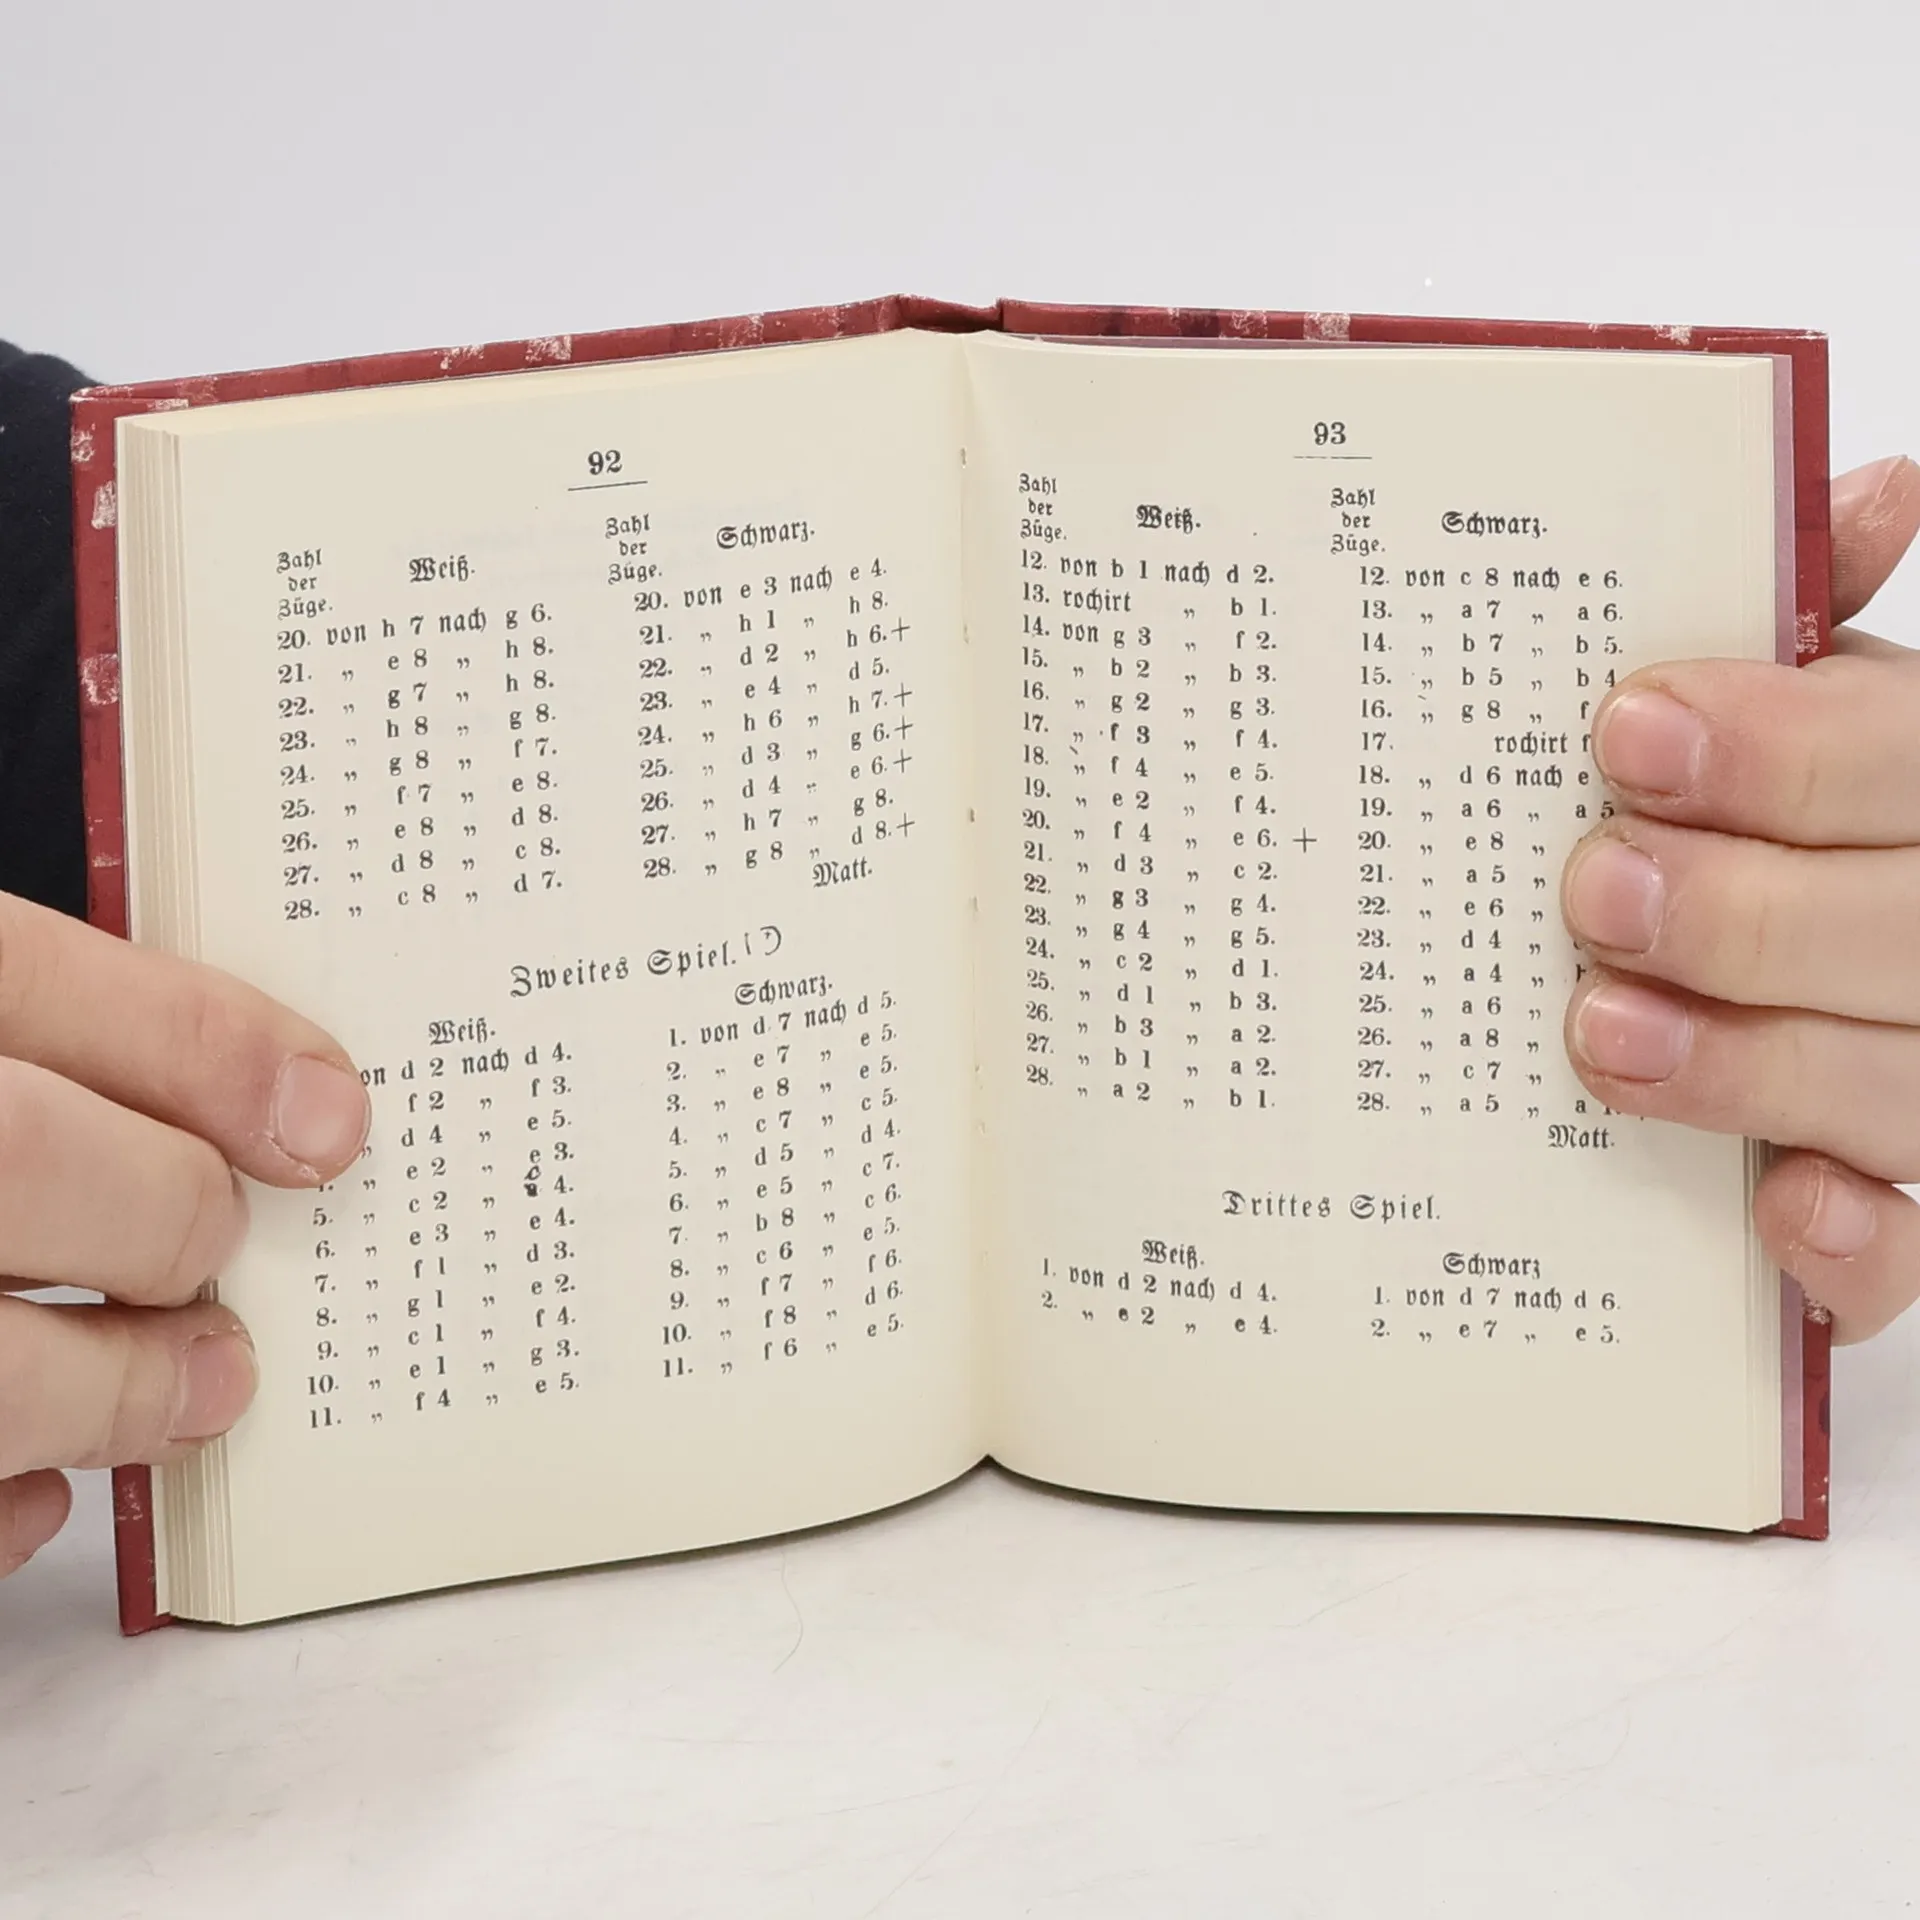 92
Zahl der Züge. Weiß. Zahl der Züge. Schwarz.
20. von h 7 nach g 6. 20. von e 3 nach e 4.
21. „ e 8 „ h 8. 21. „ h 1 „ h 8.
22. „ g 7 „ h 8. 22. „ d 2 „ h 6.+
23. „ h 8 „ g 8. 23. „ e 4 „ d 5.
24. „ g 8 „ f 7. 24. „ h 6 „ h 7.+
25. „ f 7 „ e 8. 25. „ d 3 „ g 6.+
26. „ e 8 „ d 8. 26. „ d 4 „ e 6.+
27. „ d 8 „ c 8. 27. „ h 7 „ g 8.
28. „ c 8 „ d 7. 28. „ g 8 „ d 8.+
Matt.
Zweites Spiel.
Weiß. Schwarz.
d 2 nach d 4. 1. von d 7 nach d 5.
f 2 „ f 3. 2. „ e 7 „ e 5.
„ d 4 „ e 5. 3. „ e 8 „ e 5.
„ e 2 „ e 3. 4. „ c 7 „ c 5.
5. „ c 2 „ 4. 5. „ d 5 „ d 4.
6. „ e 3 „ e 4. 6. „ e 5 „ c 7.
7. „ f 1 „ d 3. 7. „ b 8 „ c 6.
8. „ g 1 „ e 2. 8. „ c 6 „ e 5.
9. „ c 1 „ f 4. 9. „ f 7 „ f 6.
10. „ e 1 „ g 3. 10. „ f 8 „ d 6.
11. „ f 4 „ e 5. 11. „ f 6 „ e 5.
93
Zahl der Züge. Weiß. Zahl der Züge. Schwarz.
12. von b 1 nach d 2. 12. von c 8 nach e 6.
13. rochirt „ b 1. 13. „ a 7 „ a 6.
14. von g 3 „ f 2. 14. „ b 7 „ b 5.
15. „ b 2 „ b 3. 15. „ b 5 „ b 4
16. „ g 2 „ g 3. 16. „ g 8 „ f
17. „ f 3 „ f 4. 17. rochirt f
18. „ f 4 „ e 5. 18. „ d 6 nach e
19. „ e 2 „ f 4. 19. „ a 6 „ a 5
20. „ f 4 „ e 6. + 20. „ e 8 „
21. „ d 3 „ c 2. 21. „ a 5 „
22. „ g 3 „ g 4. 22. „ e 6 „
23. „ g 4 „ g 5. 23. „ d 4 „
24. „ c 2 „ d 1. 24. „ a 4 „
25. „ d 1 „ b 3. 25. „ a 6 „
26. „ b 3 „ a 2. 26. „ a 8 „
27. „ b 1 „ a 2. 27. „ c 7 „
28. „ a 2 „ b 1. 28. „ a 5 „ a
Matt.
Drittes Spiel.
Weiß. Schwarz
1. von d 2 nach d 4. 1. von d 7 nach d 6.
2. „ e 2 „ e 4. 2. „ e 7 „ e 5.